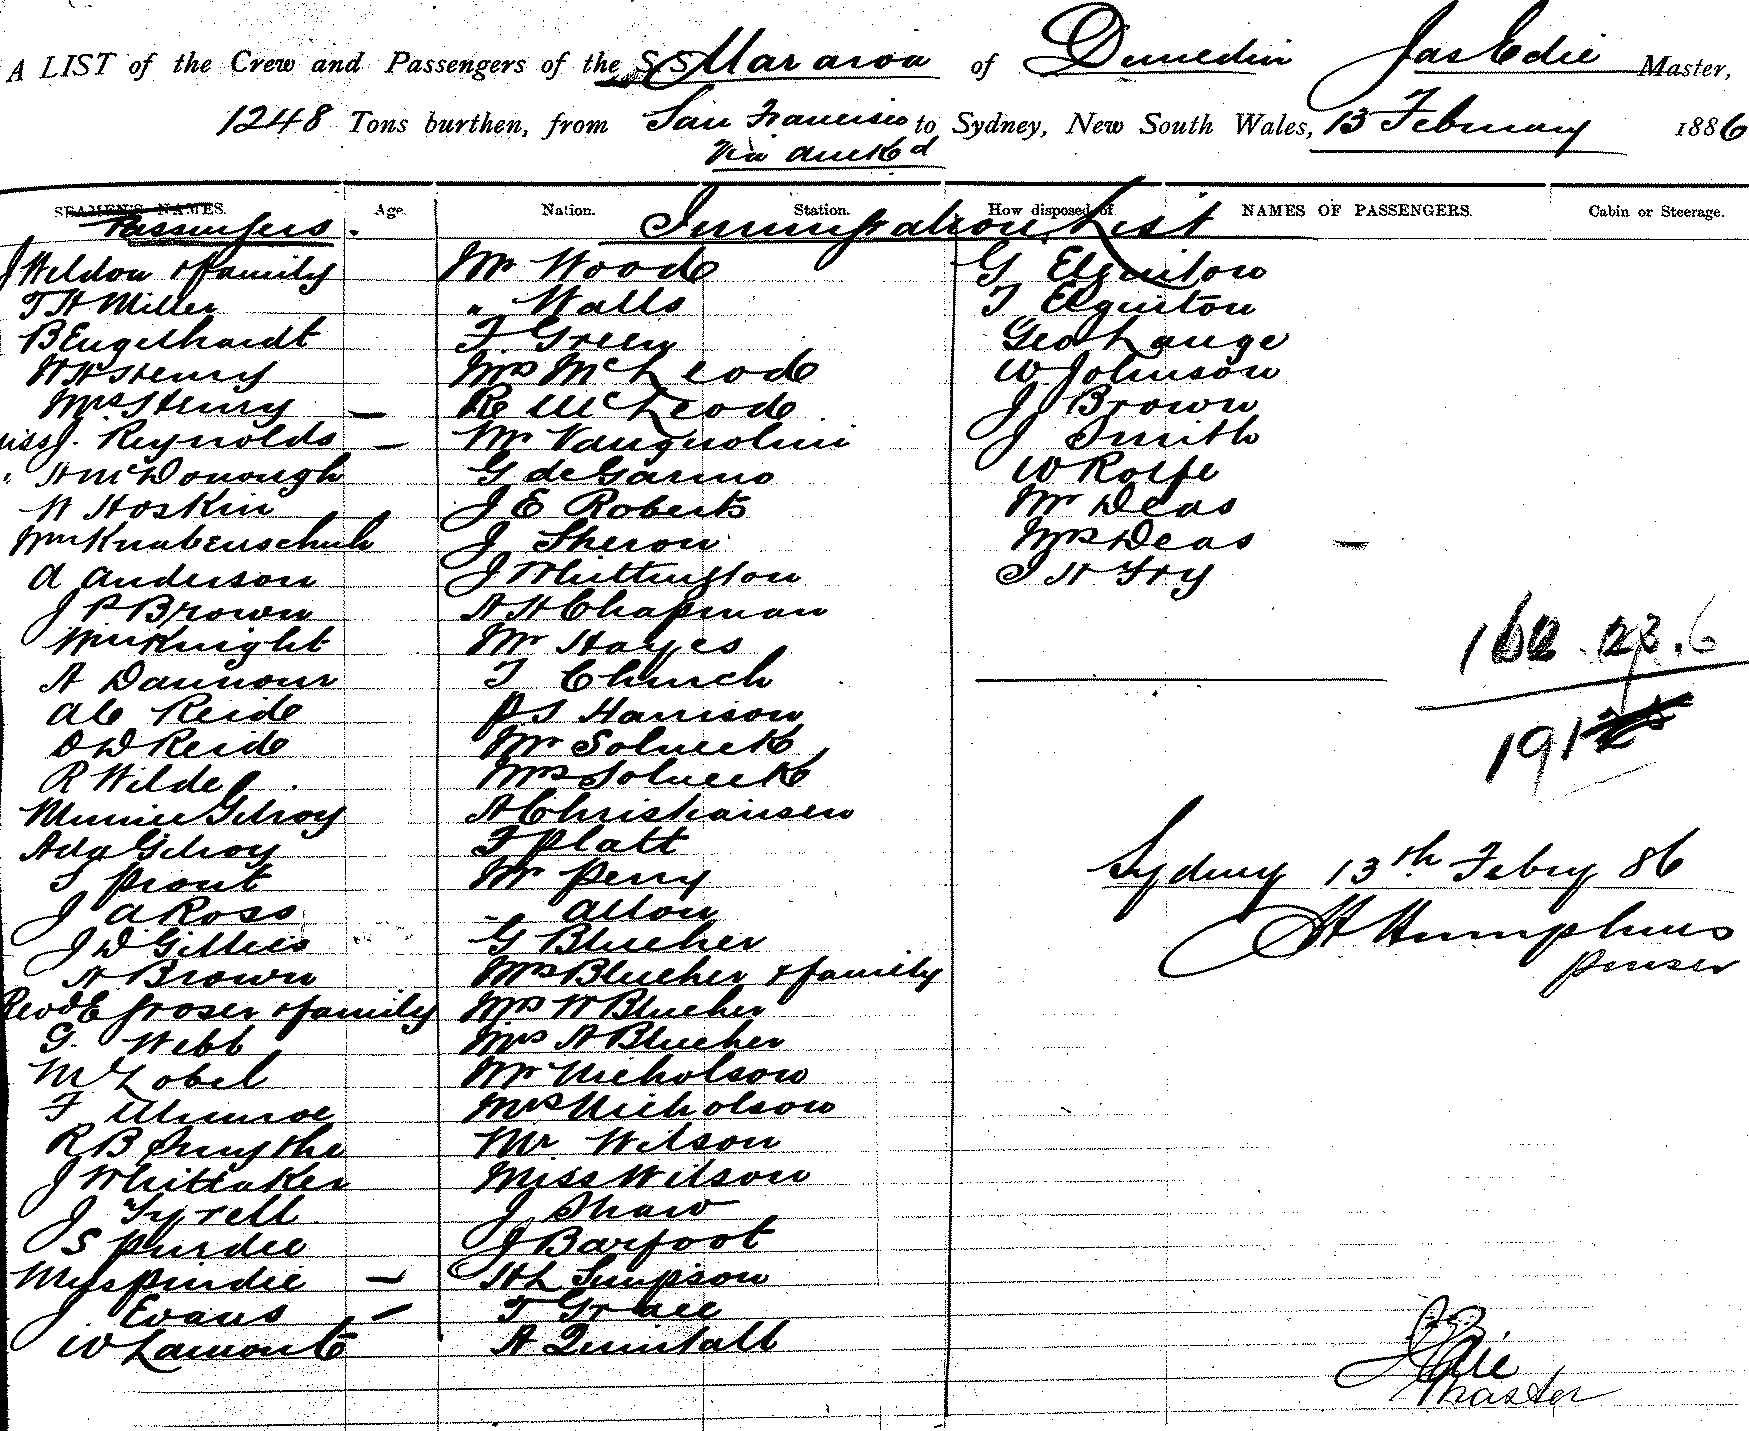 A LIST of the Crew and Passengers of the S.S. Mararoa of Dunedin Jas Edie Master,
1248 Tons burthen, from San Francisco to Sydney, New South Wales, 13 February 1886
Via Auckd
SEAMEN'S NAMES. Age. Nation. Station. How disposed of NAMES OF PASSENGERS. Cabin or Steerage.
Passengers. Immigration List
J Weldon & family
T H Miller
B Engelhardt
W H Henry
Mrs Henry —
Miss J. Reynolds —
" H McDonough
W Hoskin
Wm Knabenschuh
A Anderson
J P Brown
Wm Knight
A Dannour
Reide
D D Reide
R Wilde
Minnie Gilroy
Ada Gilroy
S Prout
J A Ross
J D Gillies
A Brown
Revd E Groser & family
G. Webb
M Lobel
F Munroe
R B Smythe
J Whittaker
J Tyrell
S Purdie
Mrs Purdie —
J Evans —
W Lamont
Mr Wood
" Walls
F Green
Mrs McLeod
R McLeod
Mr Vangnolini
G de Garmo
J E Roberts
J Sheron
J Whittington
A H Chapman
Mr Hayes
T Church
P S Harrison
Mr Solneck
Mrs Solneck
A Christiansen
F Platt
Mr Perry
" Allon
G Blucher
Mrs Blucher & family
Mrs W Blucher
Mrs A Blucher
Mr Nicholson
Mrs Nicholson
Mr Wilson
Miss Wilson
J Shaw
J Barfoot
H L Simpson
T Grace
A Quintall
G Elguiton
T Elguiton
Geo Lange
W Johnson
J Brown
J Smith
W Rolfe
Mr Deas
Mrs Deas —
J H Fry
6
191
Sydney 13th Febry 86
H Humphries
Purser
J Edie
Master